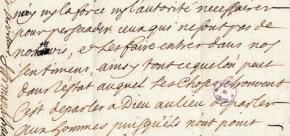 n'ay ny la force ny l'autorité necessaire
pour persuader ceux qui ne sont pas de
et les faire entrer dans nos
sentimens, ainsy tout ce que l'on peut
dans l'estat auquel les choses se trouvent
c'est de parler a Dieu au lieu de parler
aux hommes puisqu'ils n'ont point